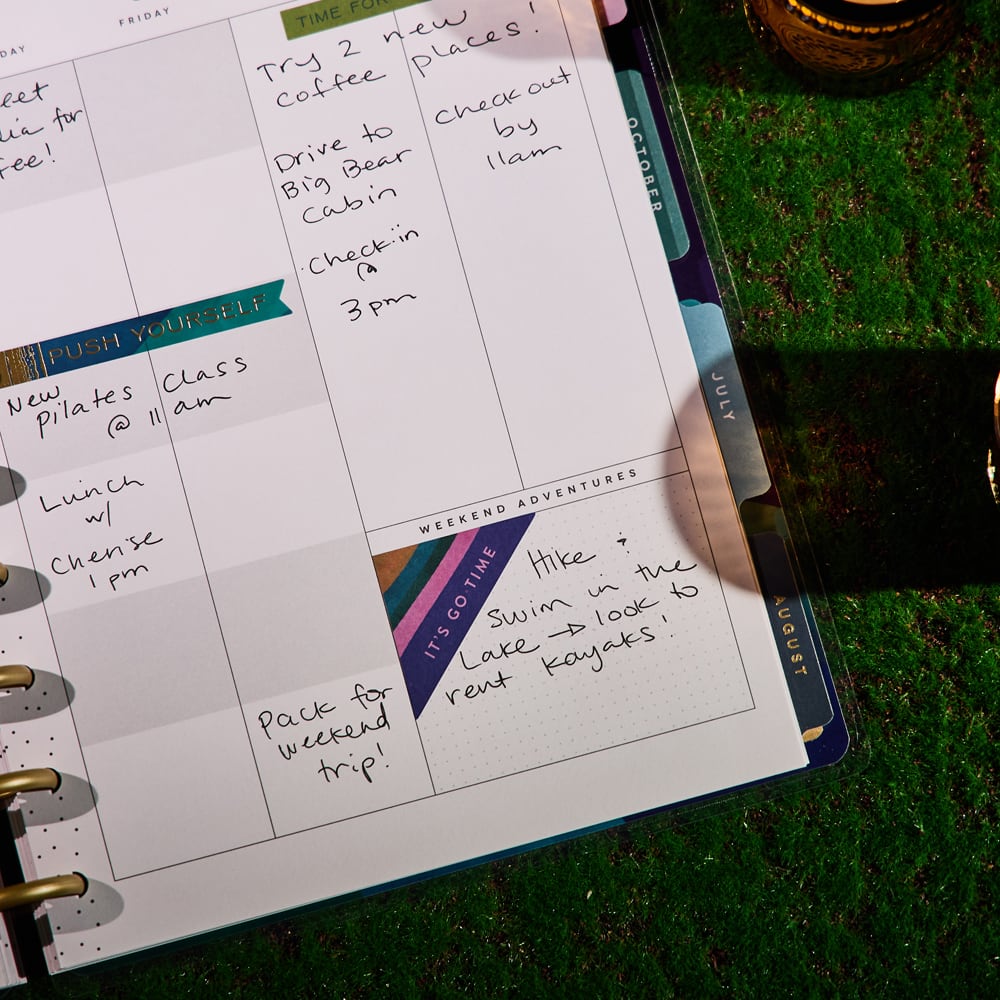 FRIDAY
DAY
TIME FOR
Try 2 new
coffee places!
eet
dia for
fee!
Drive to
Big Bear
Cabin
Check-in
@
3pm
Check out
by
11am
PUSH YOURSELF
New
Pilates Class
@ 11 am
Lunch
w/
Cherise
1 pm
Pack for
weekend
trip!
WEEKEND ADVENTURES
IT'S GO TIME
Hike &
Swim in the
Lake → look to
rent kayaks!
OCTOBER
JULY
AUGUST